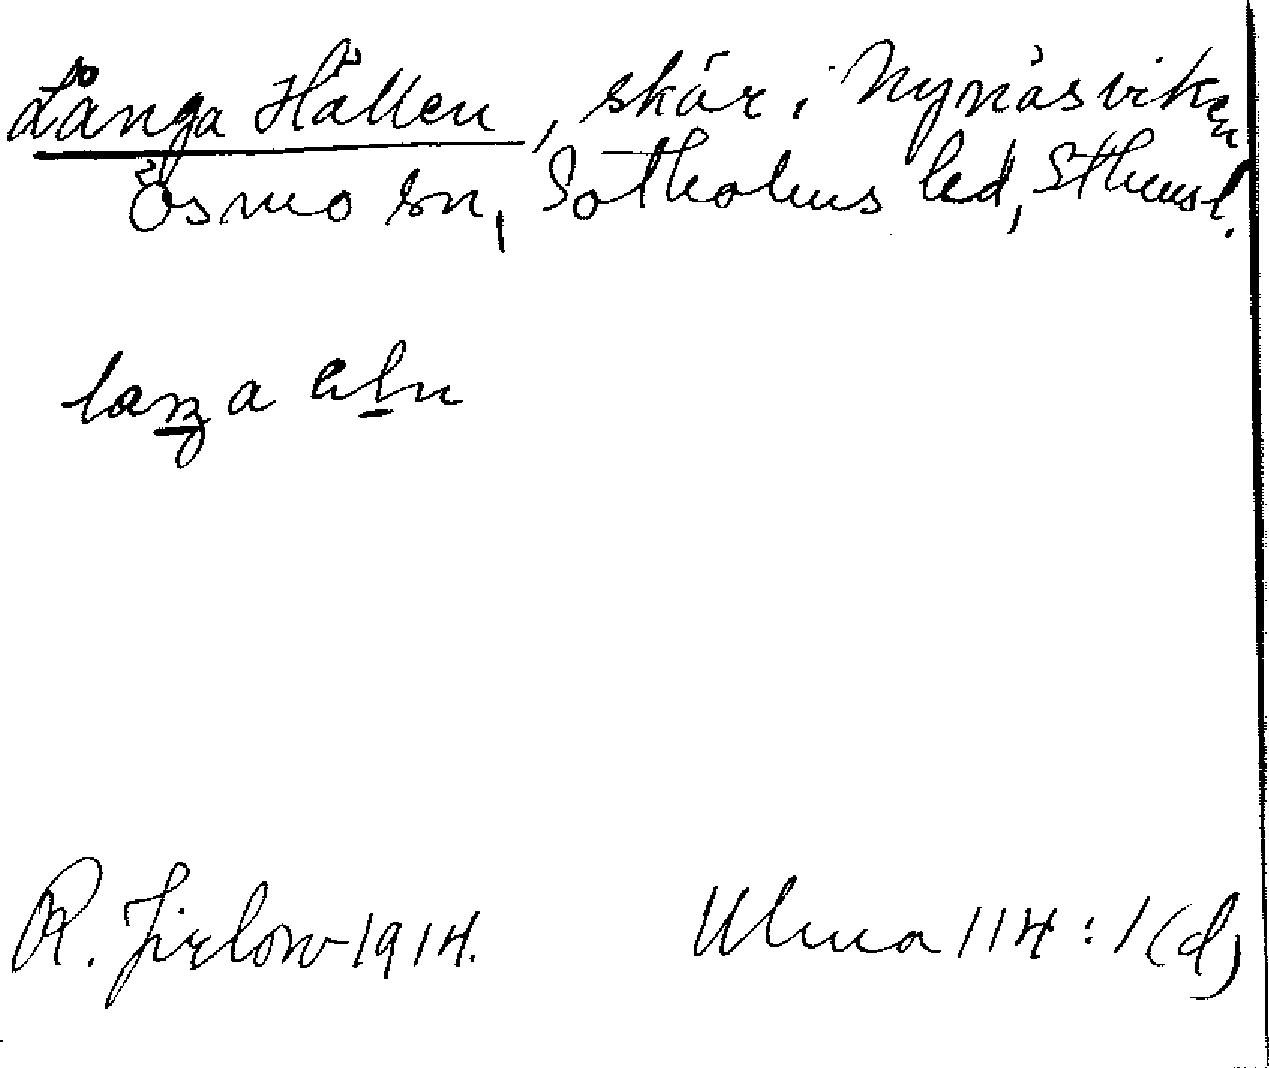 Långa Hällen, skär i Nynäsviken
Ösmo sn, Sotholms hd, Sthmsl.
R. Jirlow 1914.
Ulma 114:1(d)